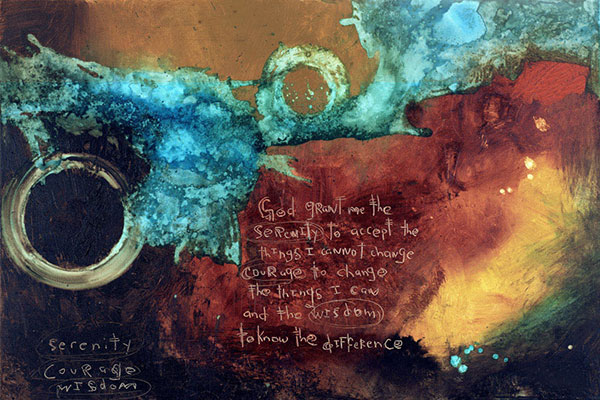 God grant me the
serenity to accept the
things I cannot change
courage to change
the things I can
and the wisdom
to know the difference
serenity
courage
wisdom